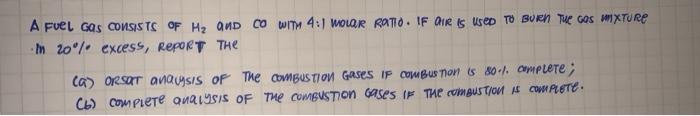 A FUEL GAS CONSISTS OF H2 AND CO WITH 4:1 MOLAR RATIO. IF AIR IS USED TO BURN THE GAS MIXTURE
IN 20% EXCESS, REPORT THE
(a) ORSAT ANALYSIS OF THE COMBUSTION GASES IF COMBUSTION IS 80% COMPLETE;
(b) COMPLETE ANALYSIS OF THE COMBUSTION GASES IF THE COMBUSTION IS COMPLETE.